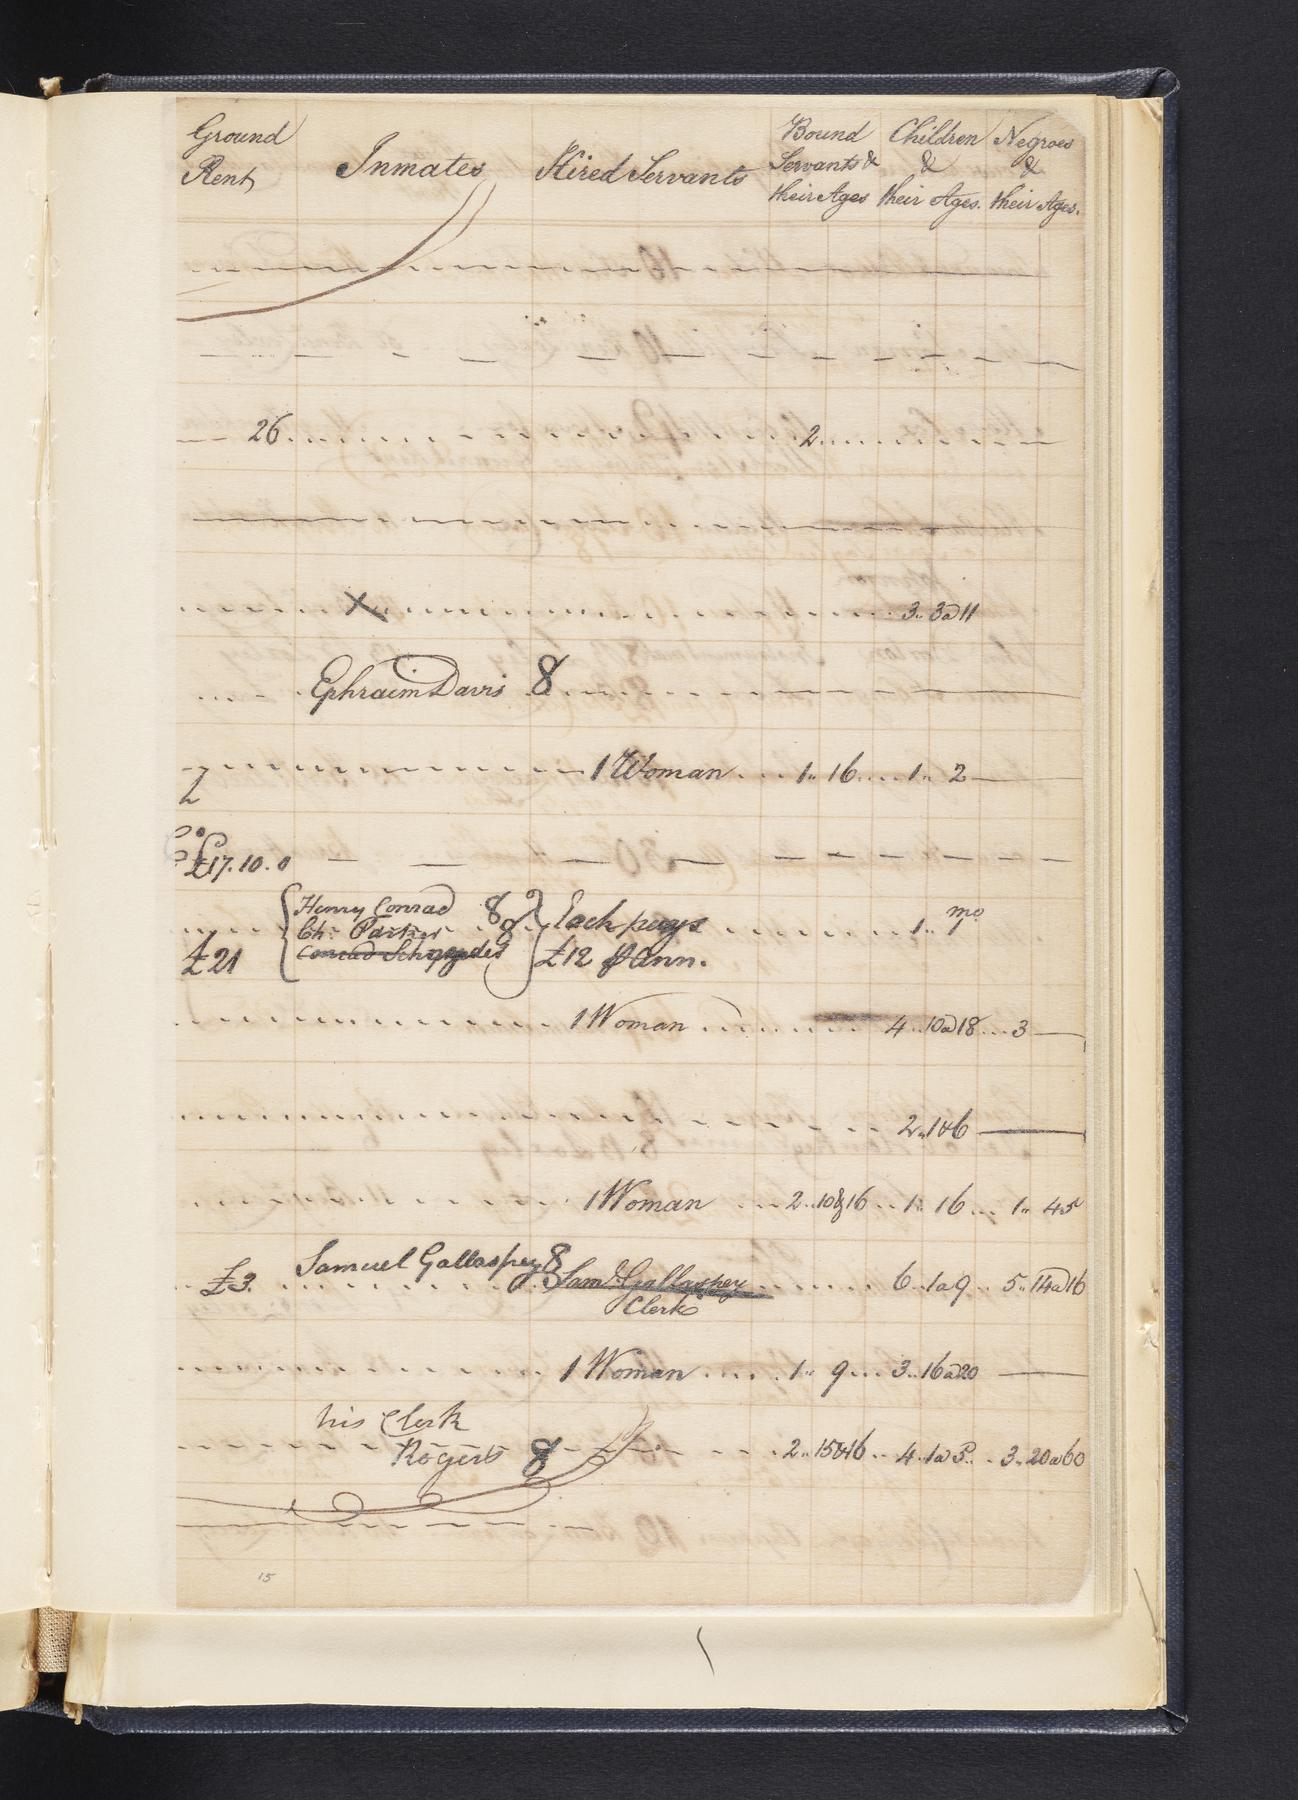 Ground Rent Inmates Hired Servants Bound Servants & their Ages Children & their Ages. Negroes & their Ages.
26 2
X 3.. 3 a 11
Ephraim Davis 8
1 Woman 1.. 16 1.. 2
£17.10.0
Henry Conrad 8 Each pays 1.. 7 mo
Ch: Parker 8
£21 Conrad Schnyder £12 ⅌ Ann.
1 Woman 4.. 10 a 18 3
2.. 1 & 6
1 Woman 2.. 10 & 16 1.. 16 1.. 45
Samuel Gallaspey 8
£3. Saml Gallaspey 6.. 1 a 9 5.. 14 a 16
Clerk
1 Woman 1.. 9 3.. 16 a 20
his Clerk
Rogers 8 2.. 15 & 16 4.. 1 a 5 3.. 20 a 60
15